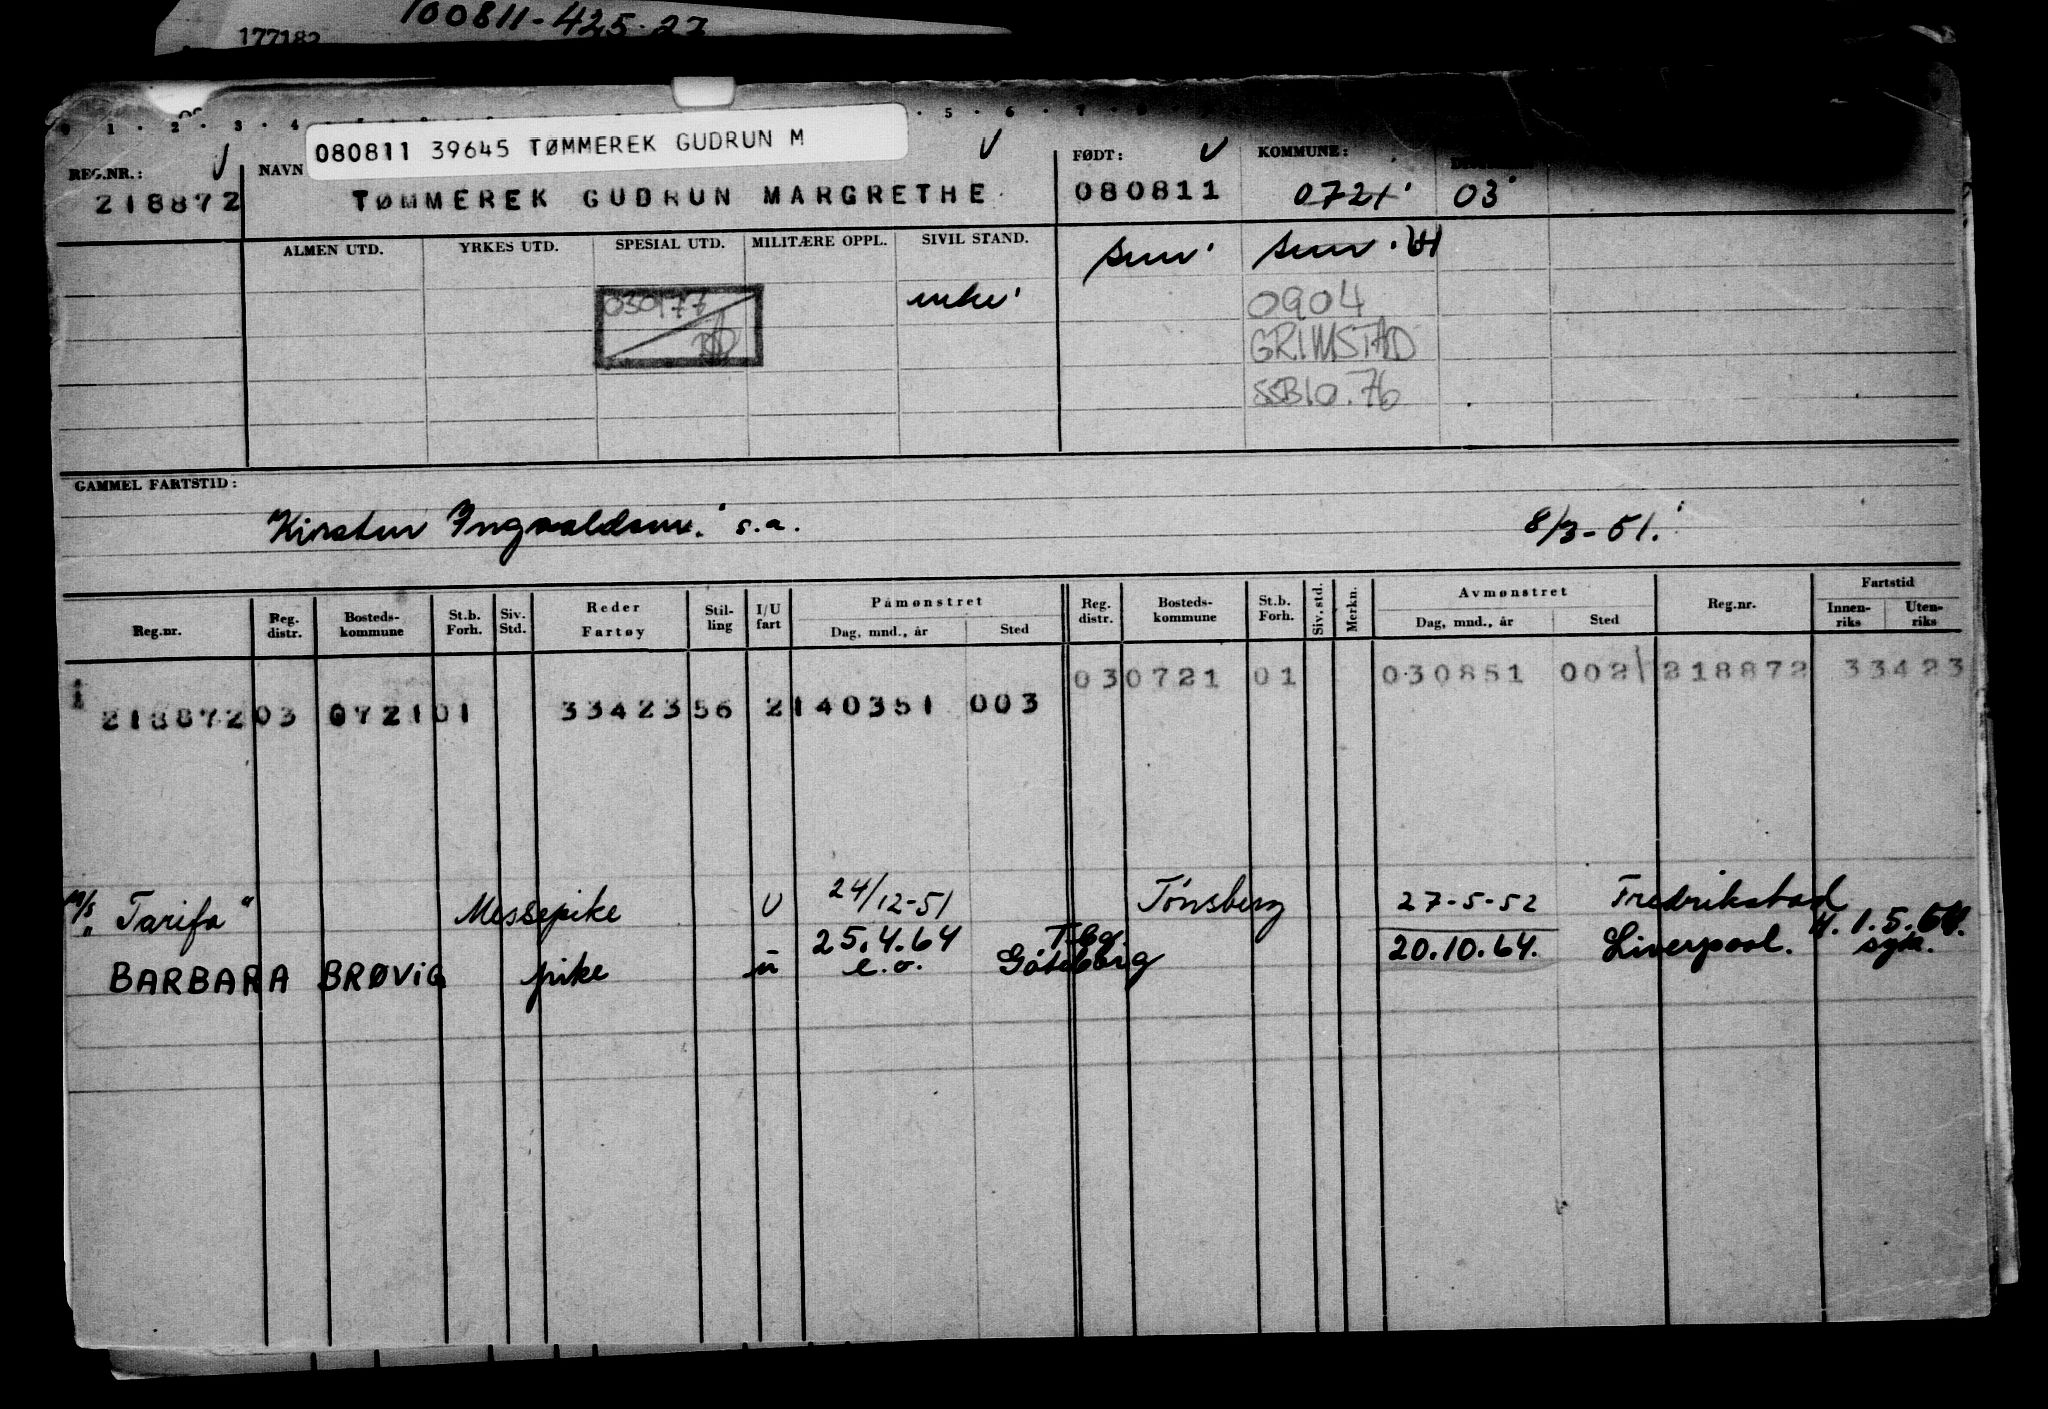 100811-425-27
177182
0 · 1 · 2 · 3 · 4 5 · 6 · 7 · 8
080811 39645 TØMMEREK GUDRUN M
REG.NR.: NAVN FØDT: KOMMUNE:
218872 TØMMEREK GUDRUN MARGRETHE 080811 0721 03
ALMEN UTD. YRKES UTD. SPESIAL UTD. MILITÆRE OPPL. SIVIL STAND.
030177 enke 0904
GRIMSTAD
SSB10.76
GAMMEL FARTSTID:
Kirsten Ingvaldsen. s.a. 8/3-51.
Reg.nr. Reg. distr. Bosteds- kommune St.b. Forh. Siv. Std. Reder Fartøy Stil- ling I/U fart Påmønstret Dag, mnd., år Sted Reg. distr. Bosteds- kommune St.b. Forh. Siv. std. Merkn. Avmønstret Dag, mnd., år Sted Reg.nr. Fartstid Innen- riks Uten- riks
030721 01 030851 002 218872 33423
218872 03 0721 01 33423 56 2 140351 003
M/S "Tarifa" Messepike U 24/12-51 Tønsberg 27-5-52 Fredrikstad
BARBARA BRØVIG pike u 25.4.64 e.o. T.bg. Göteborg 20.10.64. Liverpool. H. 1.5.64. syk.